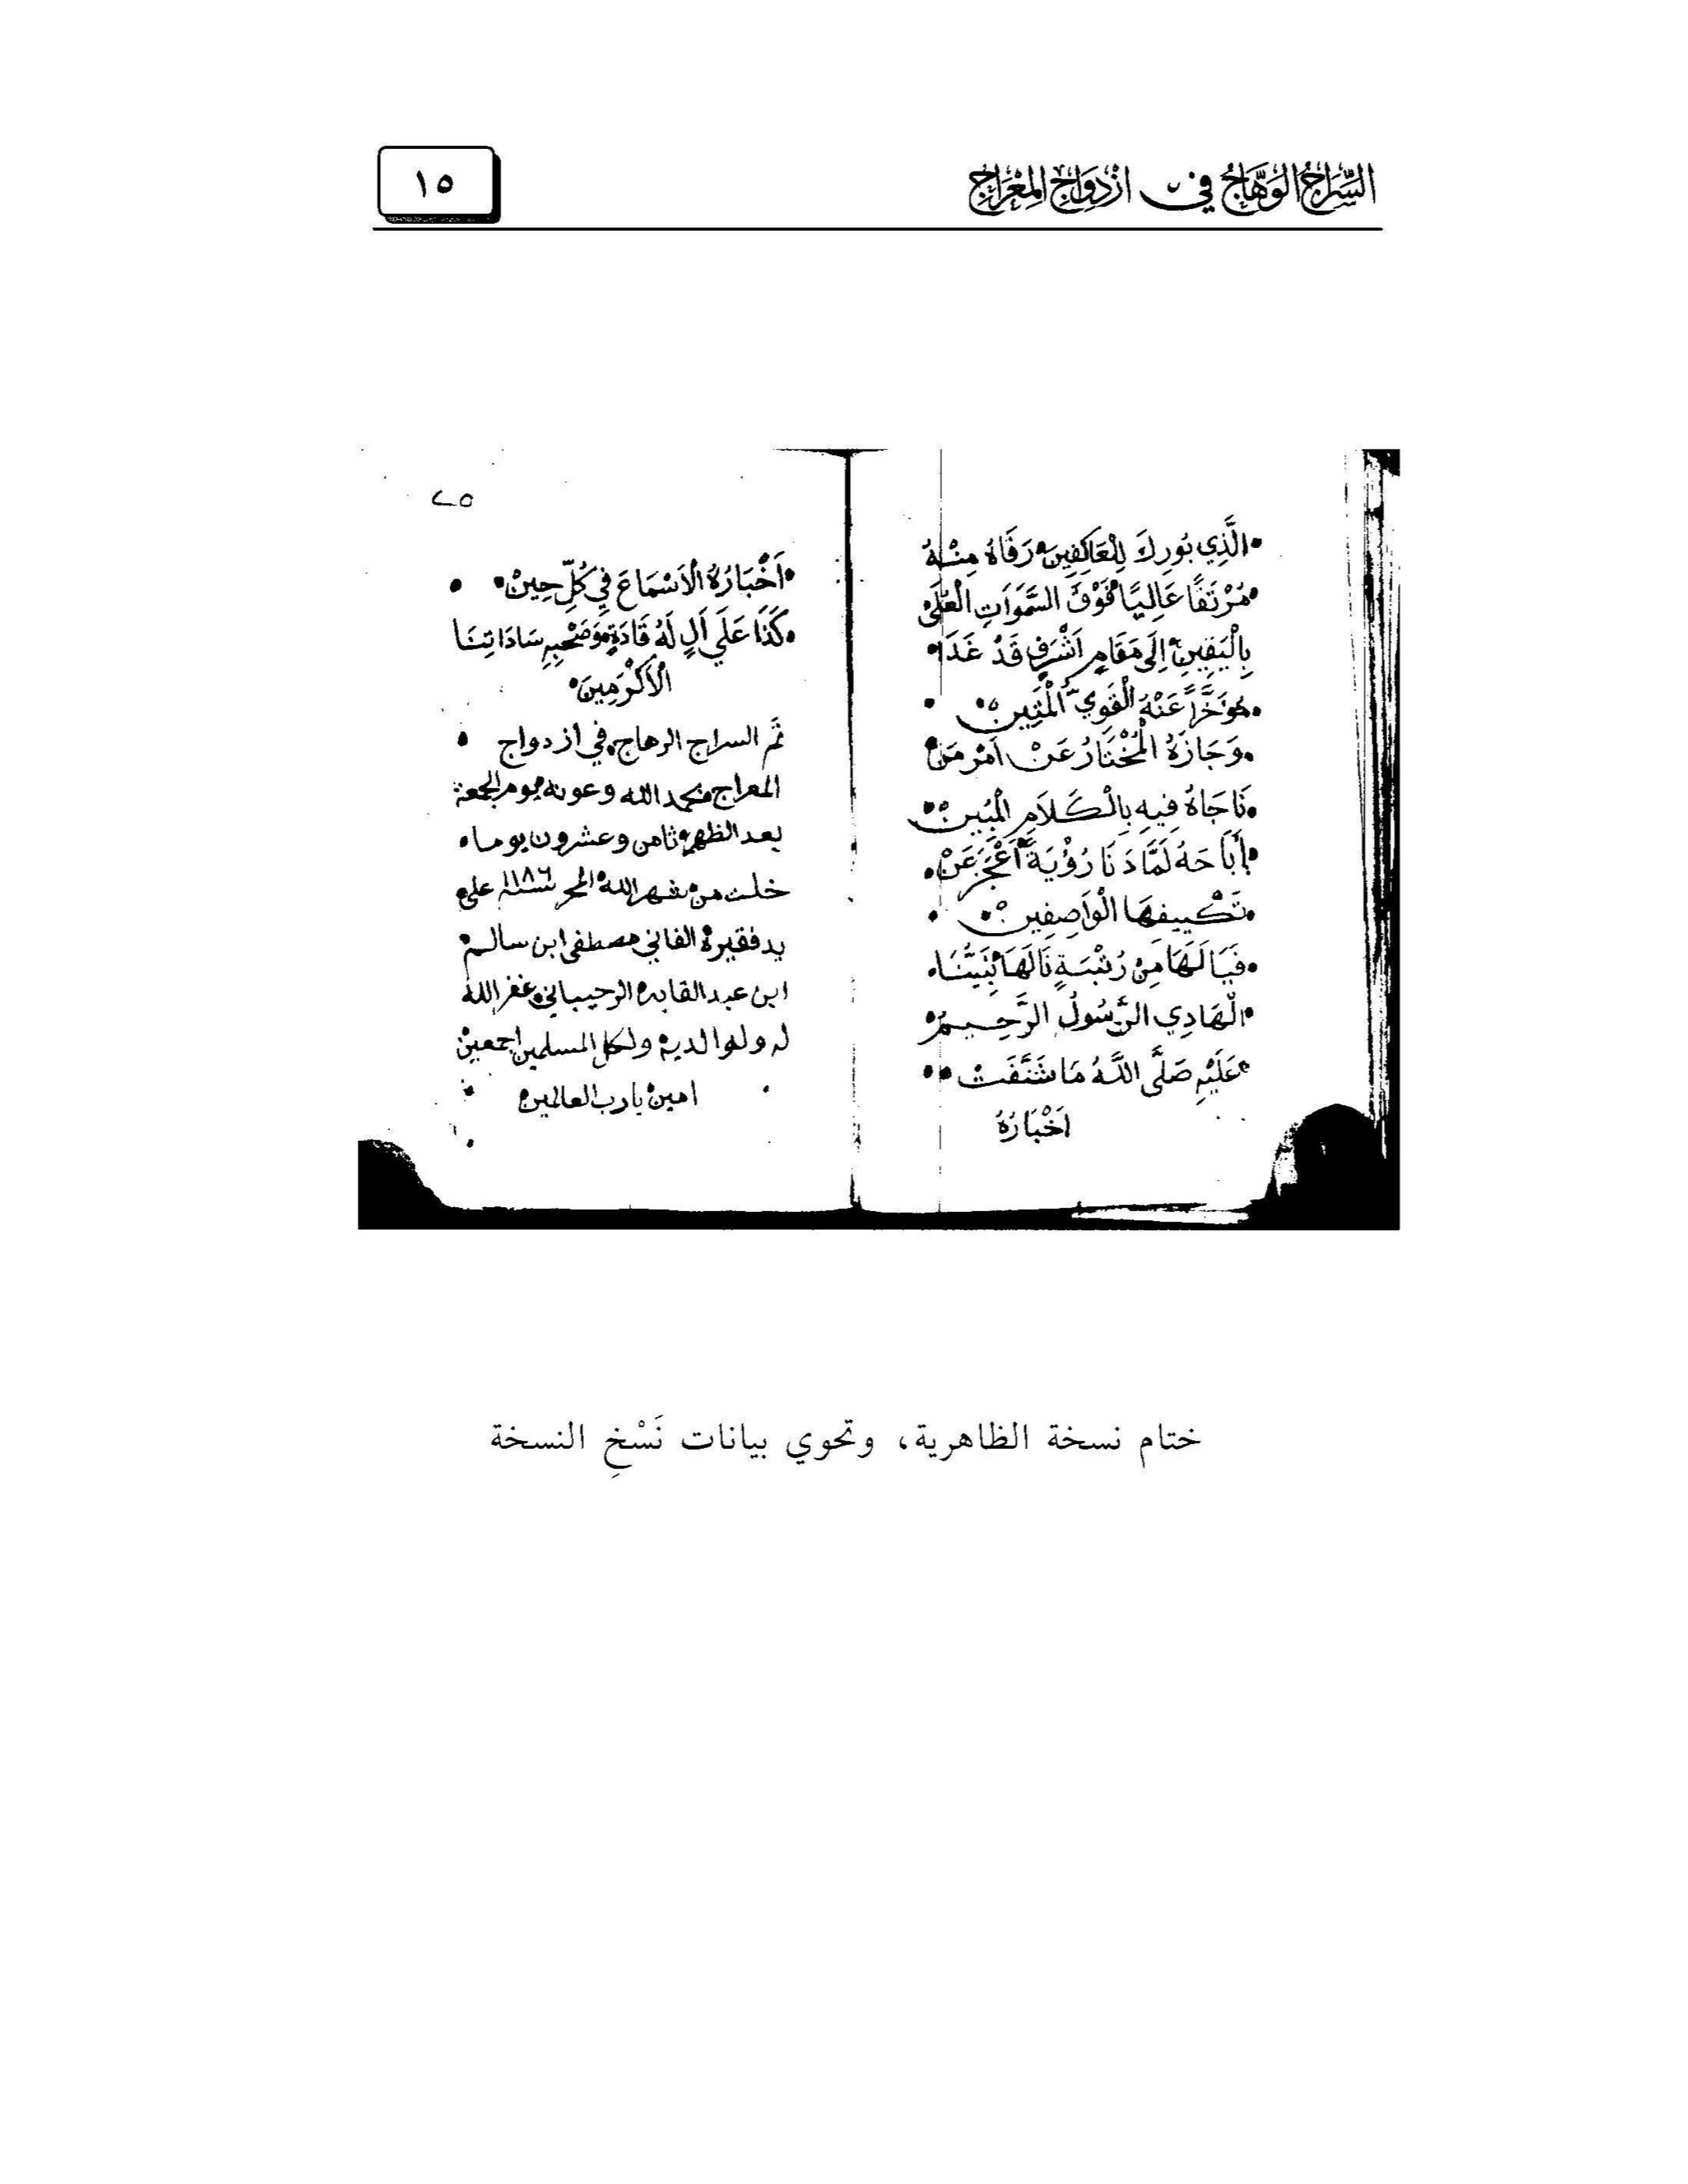 السِّرَاجُ الوَهَّاجُ فِي ازْدِوَاجِ المِعْرَاجِ
١٥
الَّذِي بُورِكَ لِلْعَاكِفِينَ رَقَاهُ مِنْهُ
مُرْتَقًا عَالِيًا فَوْقَ السَّمَوَاتِ الْعُلَى
بِالْيَقِينِ إِلَى مَقَامٍ اَشْرَفٍ قَدْ غَدَا
مُؤَخَّرًا عَنْهُ الْقَوِيُّ الْمَتِينْ
وَجَازَهُ الْمُخْتَارُ عَنْ اَمْرِ مَنْ
نَاجَاهُ فِيهِ بِالْكَلَامِ الْمُبِينْ
أَبَاحَهُ لَمَّا دَنَا رُؤْيَةً اَعْجَزَ عَنْ
تَكْيِيفِهَا الْوَاصِفِينْ
فَيَا لَهَا مِنْ رُتْبَةٍ نَالَهَا نَبِيُّنَا
الْهَادِي الرَّسُولُ الرَّحِيمْ
عَلَيْهِ صَلَّى اللَّهُ مَا شَنَّفَتْ
اَخْبَارُهُ
٢٥
اَخْبَارُهُ الْاَسْمَاعَ فِي كُلِّ حِينْ
كَذَا عَلَى اَلٍ لَهُ قَادَةٍ وَصَحْبِهِ سَادَاتِنَا
الْاَكْرَمِينَ
تَم السراج الوهاج في ازدواج
المعراج بحمد الله وعونه يوم الجمعة
بعد الظهر ثامن وعشرون يوما
خلت من شهر الله المحرم سنة ١١٨٦ على
يد فقيره الفاني مصطفى ابن سالم
ابن عبد القادر الرحيباني غفر الله
له ولوالديه ولكل المسلمين اجمعين
امين يارب العالمين
ختام نسخة الظاهرية، وتحوي بيانات نَسْخِ النسخة